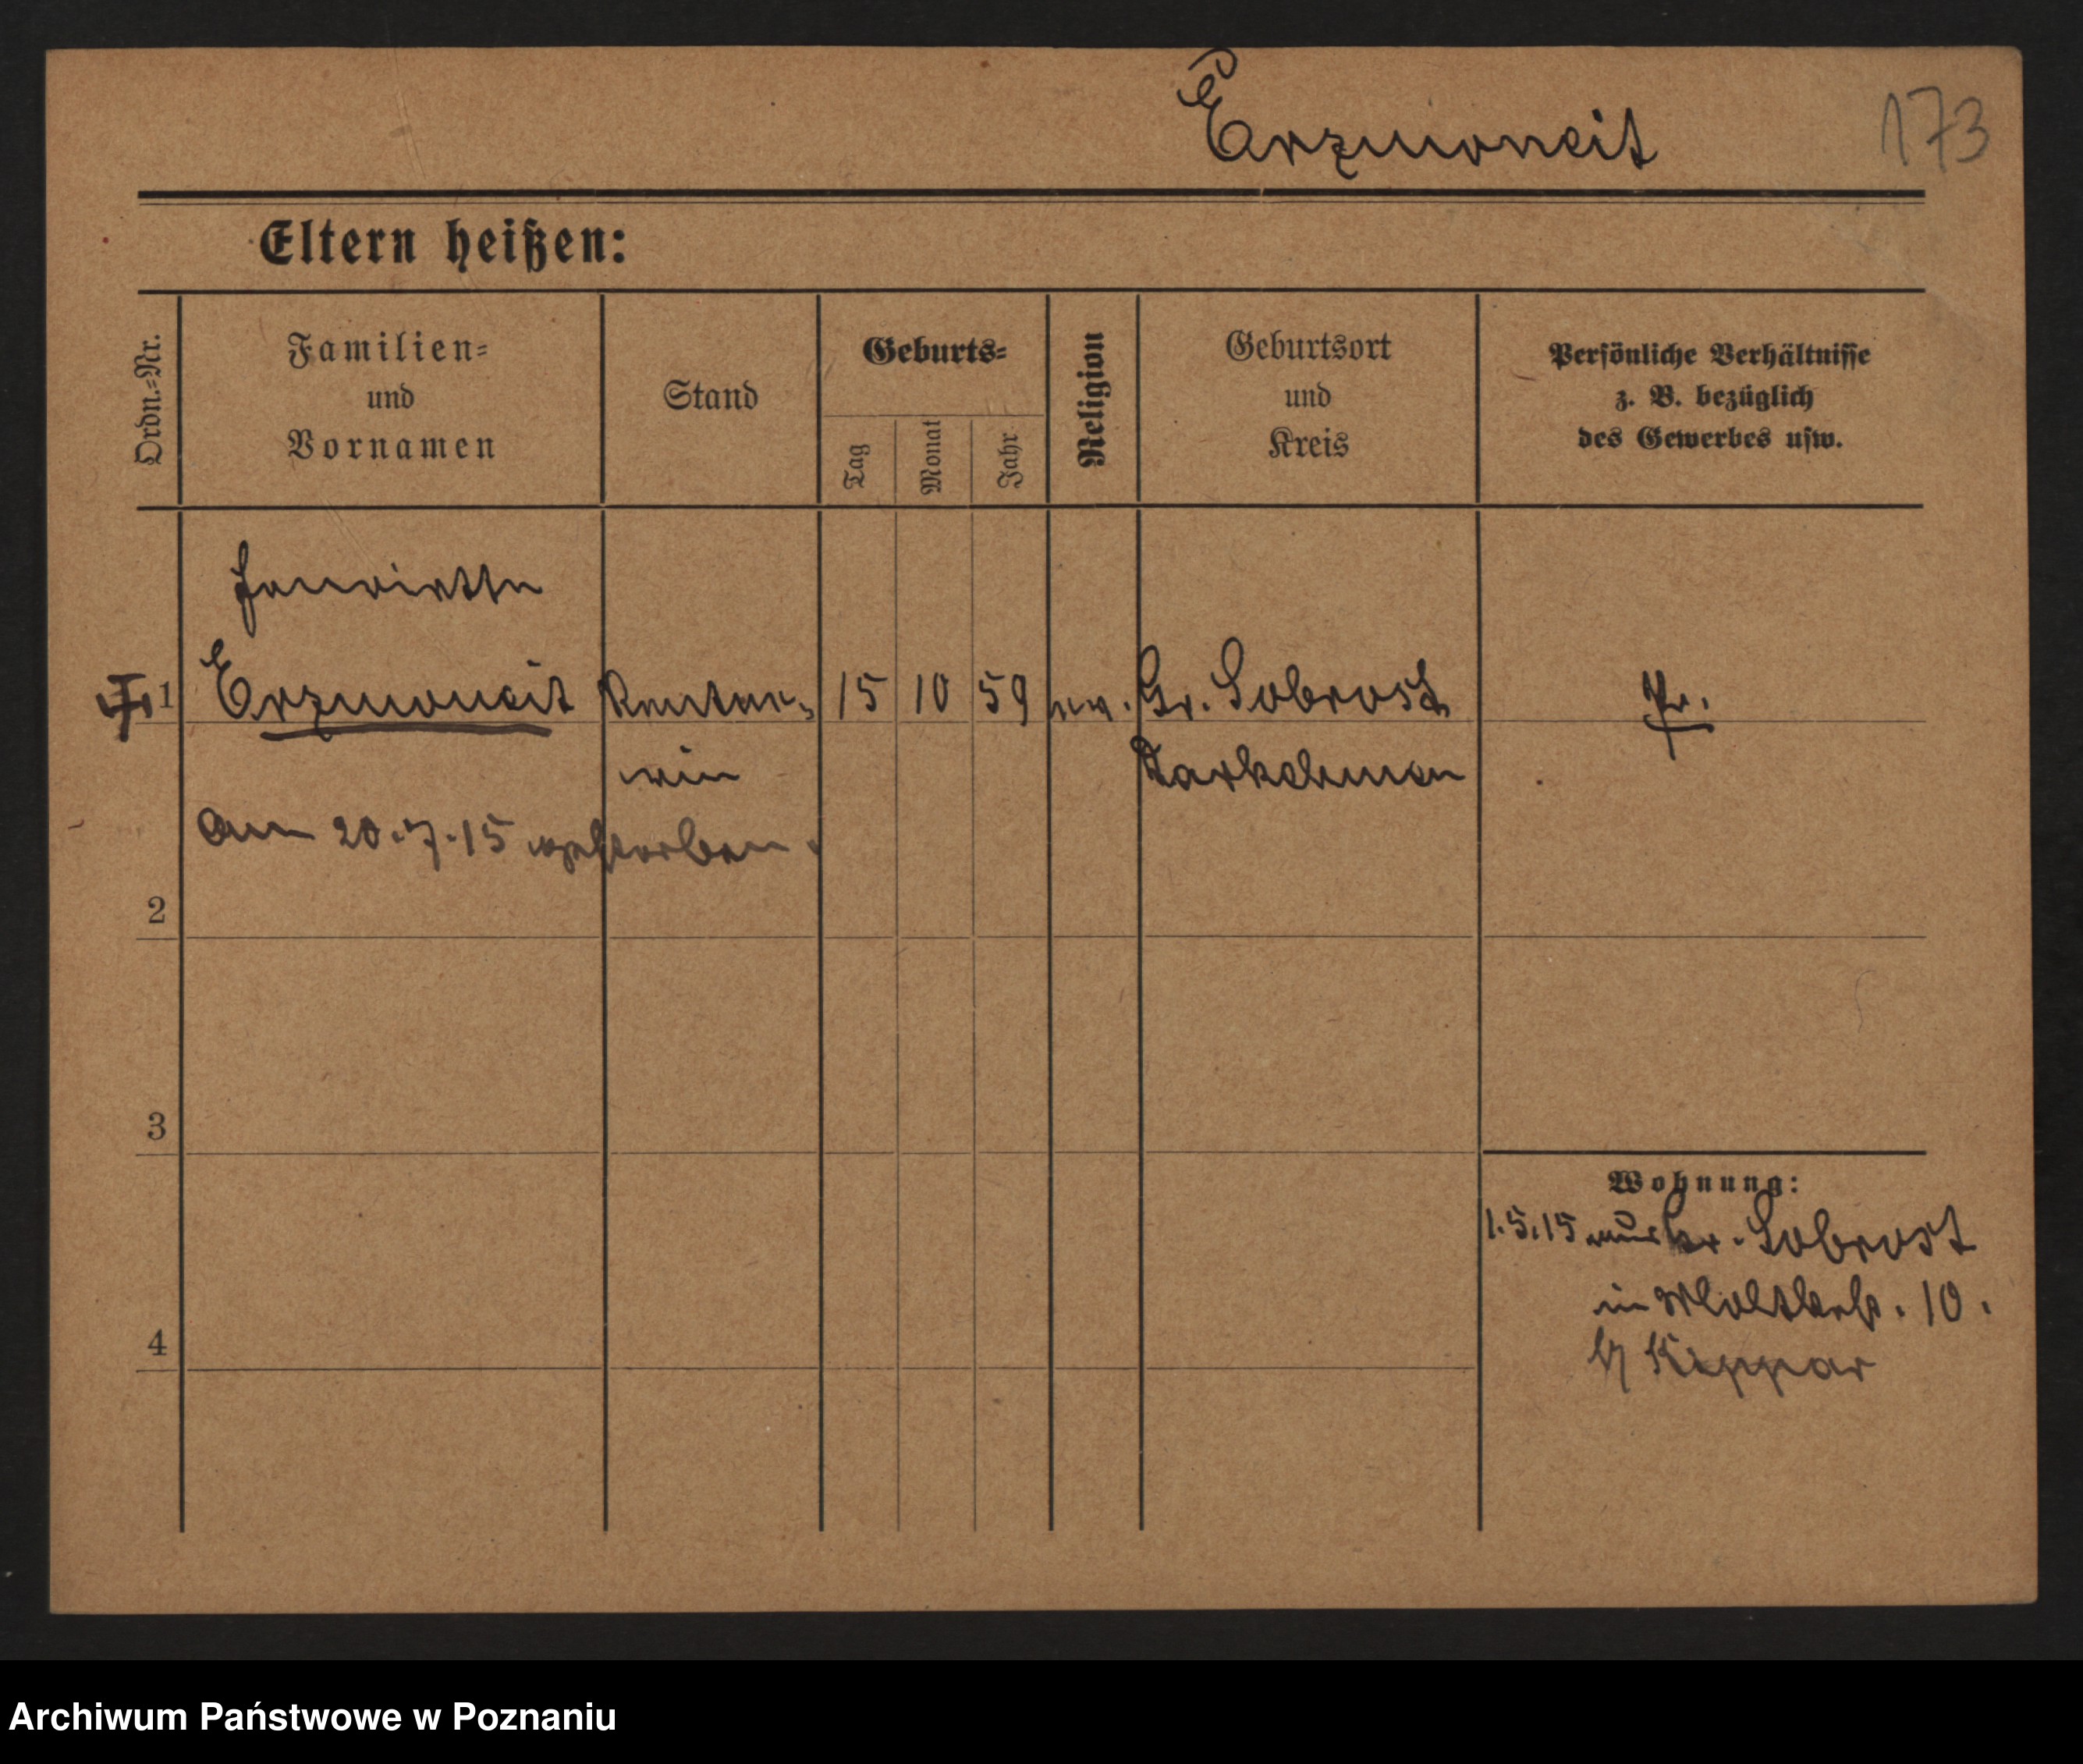 Erzmoneit
173
Eltern heißen:
Ordn.-Nr.
Familien-
und
Vornamen
Stand
Geburts-
Tag
Monat
Jahr
Religion
Geburtsort
und
Kreis
Persönliche Verhältnisse
z. B. bezüglich
des Gewerbes usw.
Henriette
1 Erzmoneit Rentne- 15 10 59 ev. Gr. Sobrost Pr.
rin Darkehmen
Am 20.7.15 gestorben.
2
3
4
Wohnung:
1.5.15 aus Gr. Sobrost
in Moltkestr. 10.
b/ Keppar
Archiwum Państwowe w Poznaniu